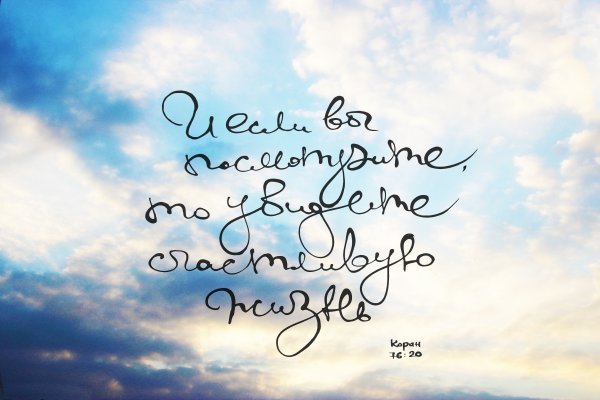 И если вы
посмотрите,
то увидете
счастливую
жизнь
Коран
76:20